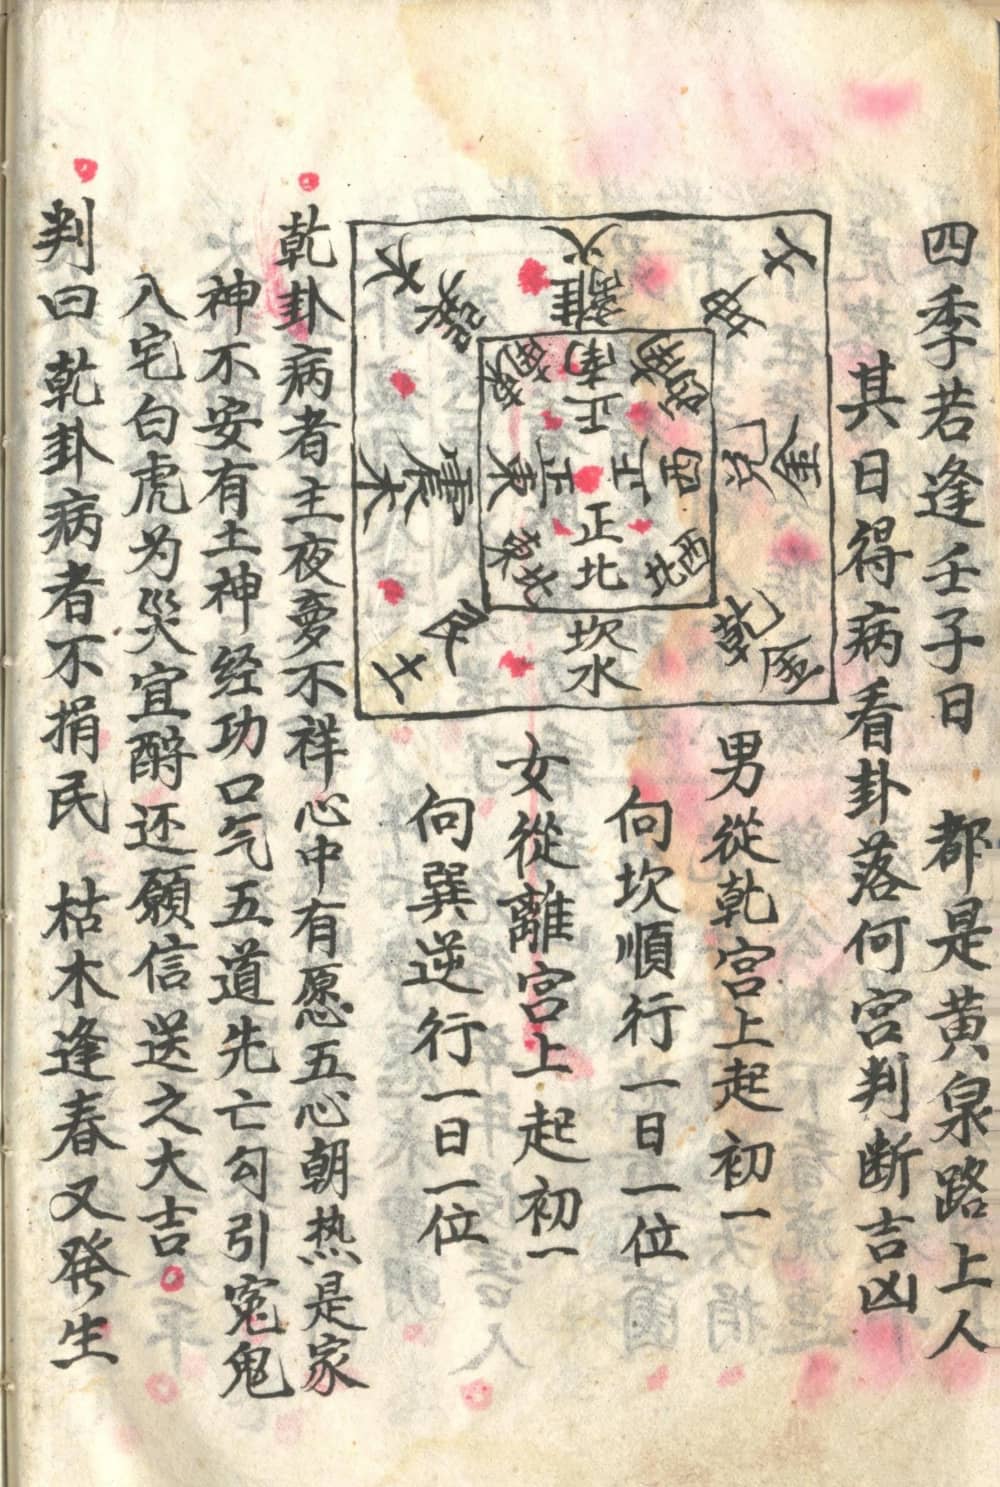 四季若逢壬子日 都是黄泉路上人
其日得病看卦落何宫判断吉凶
火離
坤
金兑
金乾
坎水
土艮
木震
木巽
正南
西南
正西
西北
正北
東北
正東
東南
男從乾宫上起初一
向坎順行一日一位
女從離宫上起初一
向巽逆行一日一位
乾卦病者主夜夢不祥心中有愿五心朝热是家
神不安有土神经功口气五道先亡勾引寃鬼
入宅白虎为災宜酧还願信送之大吉
判曰乾卦病者不捐民 枯木逢春又発生